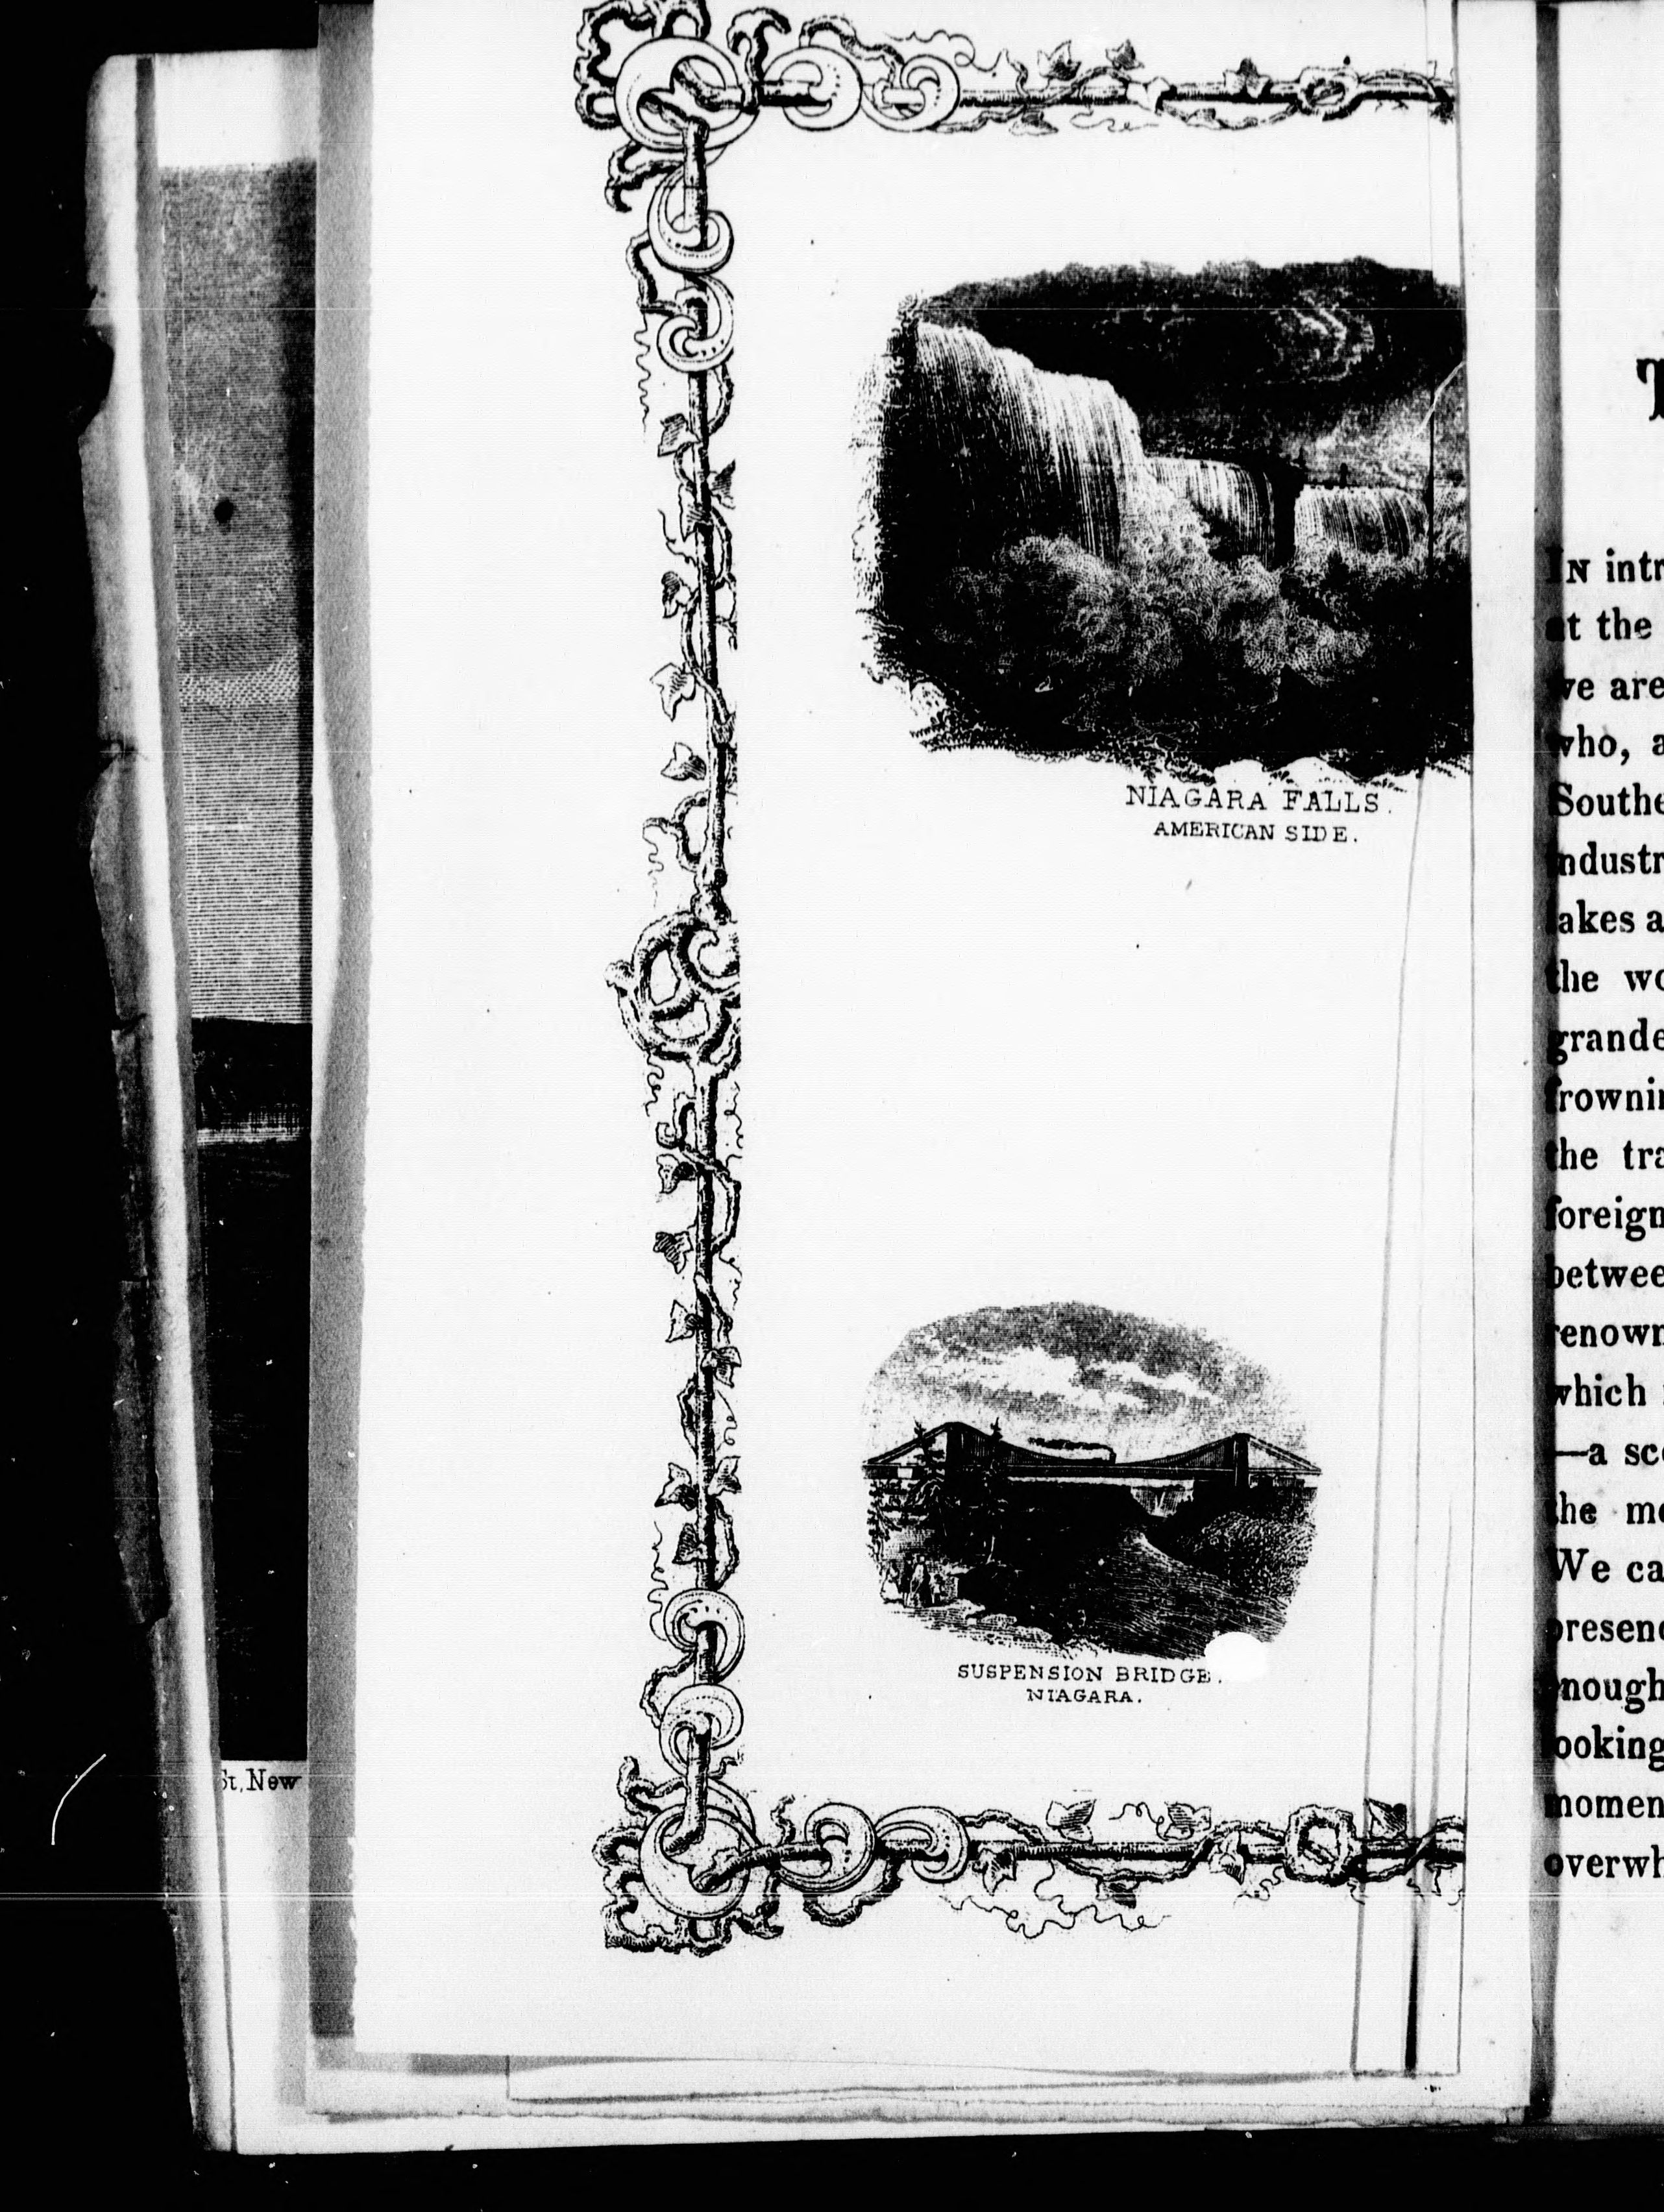 NIAGARA FALLS.
AMERICAN SIDE.
SUSPENSION BRIDGE.
NIAGARA.
St, New
T
IN intr
at the
we are
who, a
Southe
industr
lakes a
the wo
grande
frownin
the tra
foreign
betwee
renown
which
—a sce
the mo
We ca
presenc
enough
looking
momen
overwh